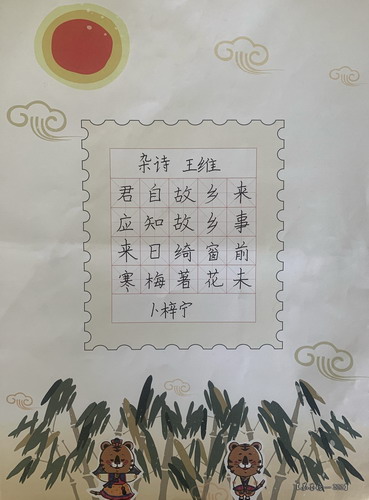 杂诗 王维
君自故乡来
应知故乡事
来日绮窗前
寒梅著花未
卜梓宁